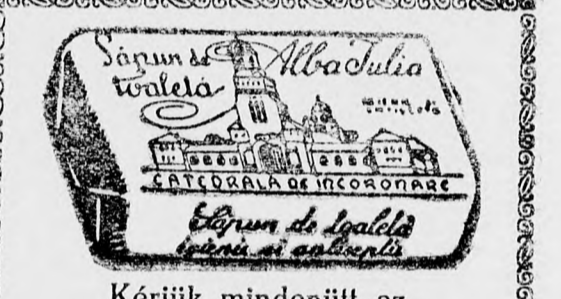 Săpun de
toaletă
Alba Julia
CATEDRALA DE INCORONARE
Săpun de toaletă
igienic si antiseptic
Kérjük mindenütt az